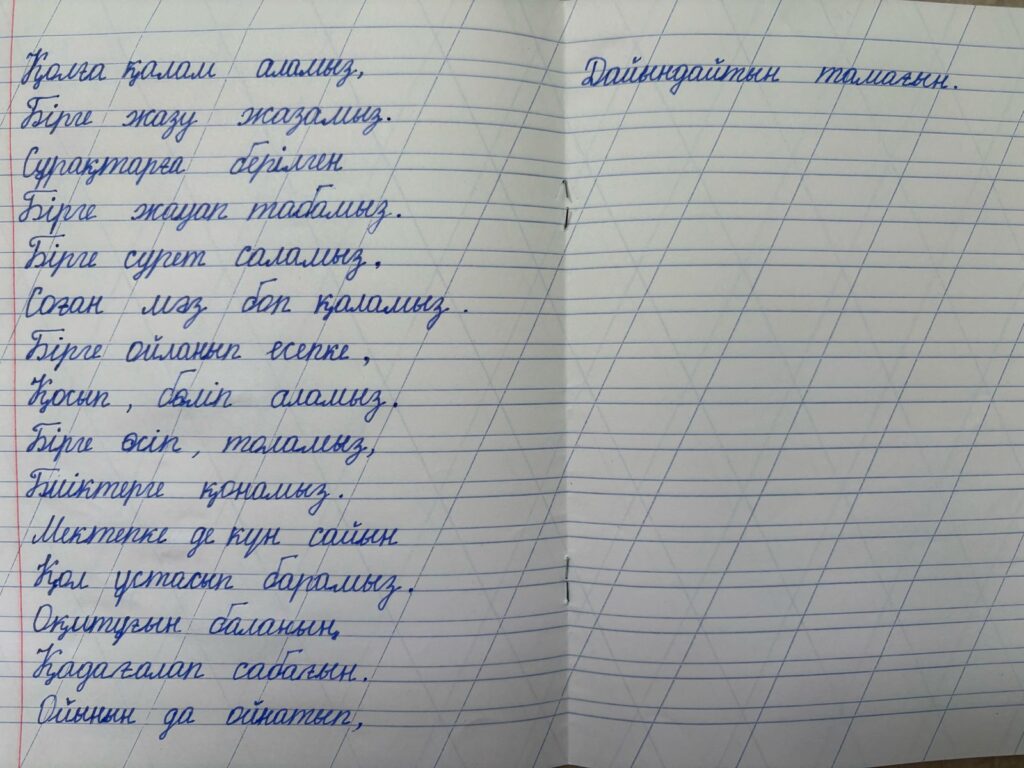 Қолға қалам аламыз,
Бірге жазу жазамыз.
Сұрақтарға берілген
Бірге жауап табамыз.
Бірге сурет саламыз.
Соған мәз боп қаламыз.
Бірге ойланып есепке,
Қосып, бөліп аламыз.
Бірге өсіп, толамыз,
Биіктерге қонамыз.
Мектепке де күн сайын
Қол ұстасып барамыз.
Оқытұғын баланың,
Қадағалап сабағын.
Ойынын да ойнатып,
Дайындайтын тамағын.